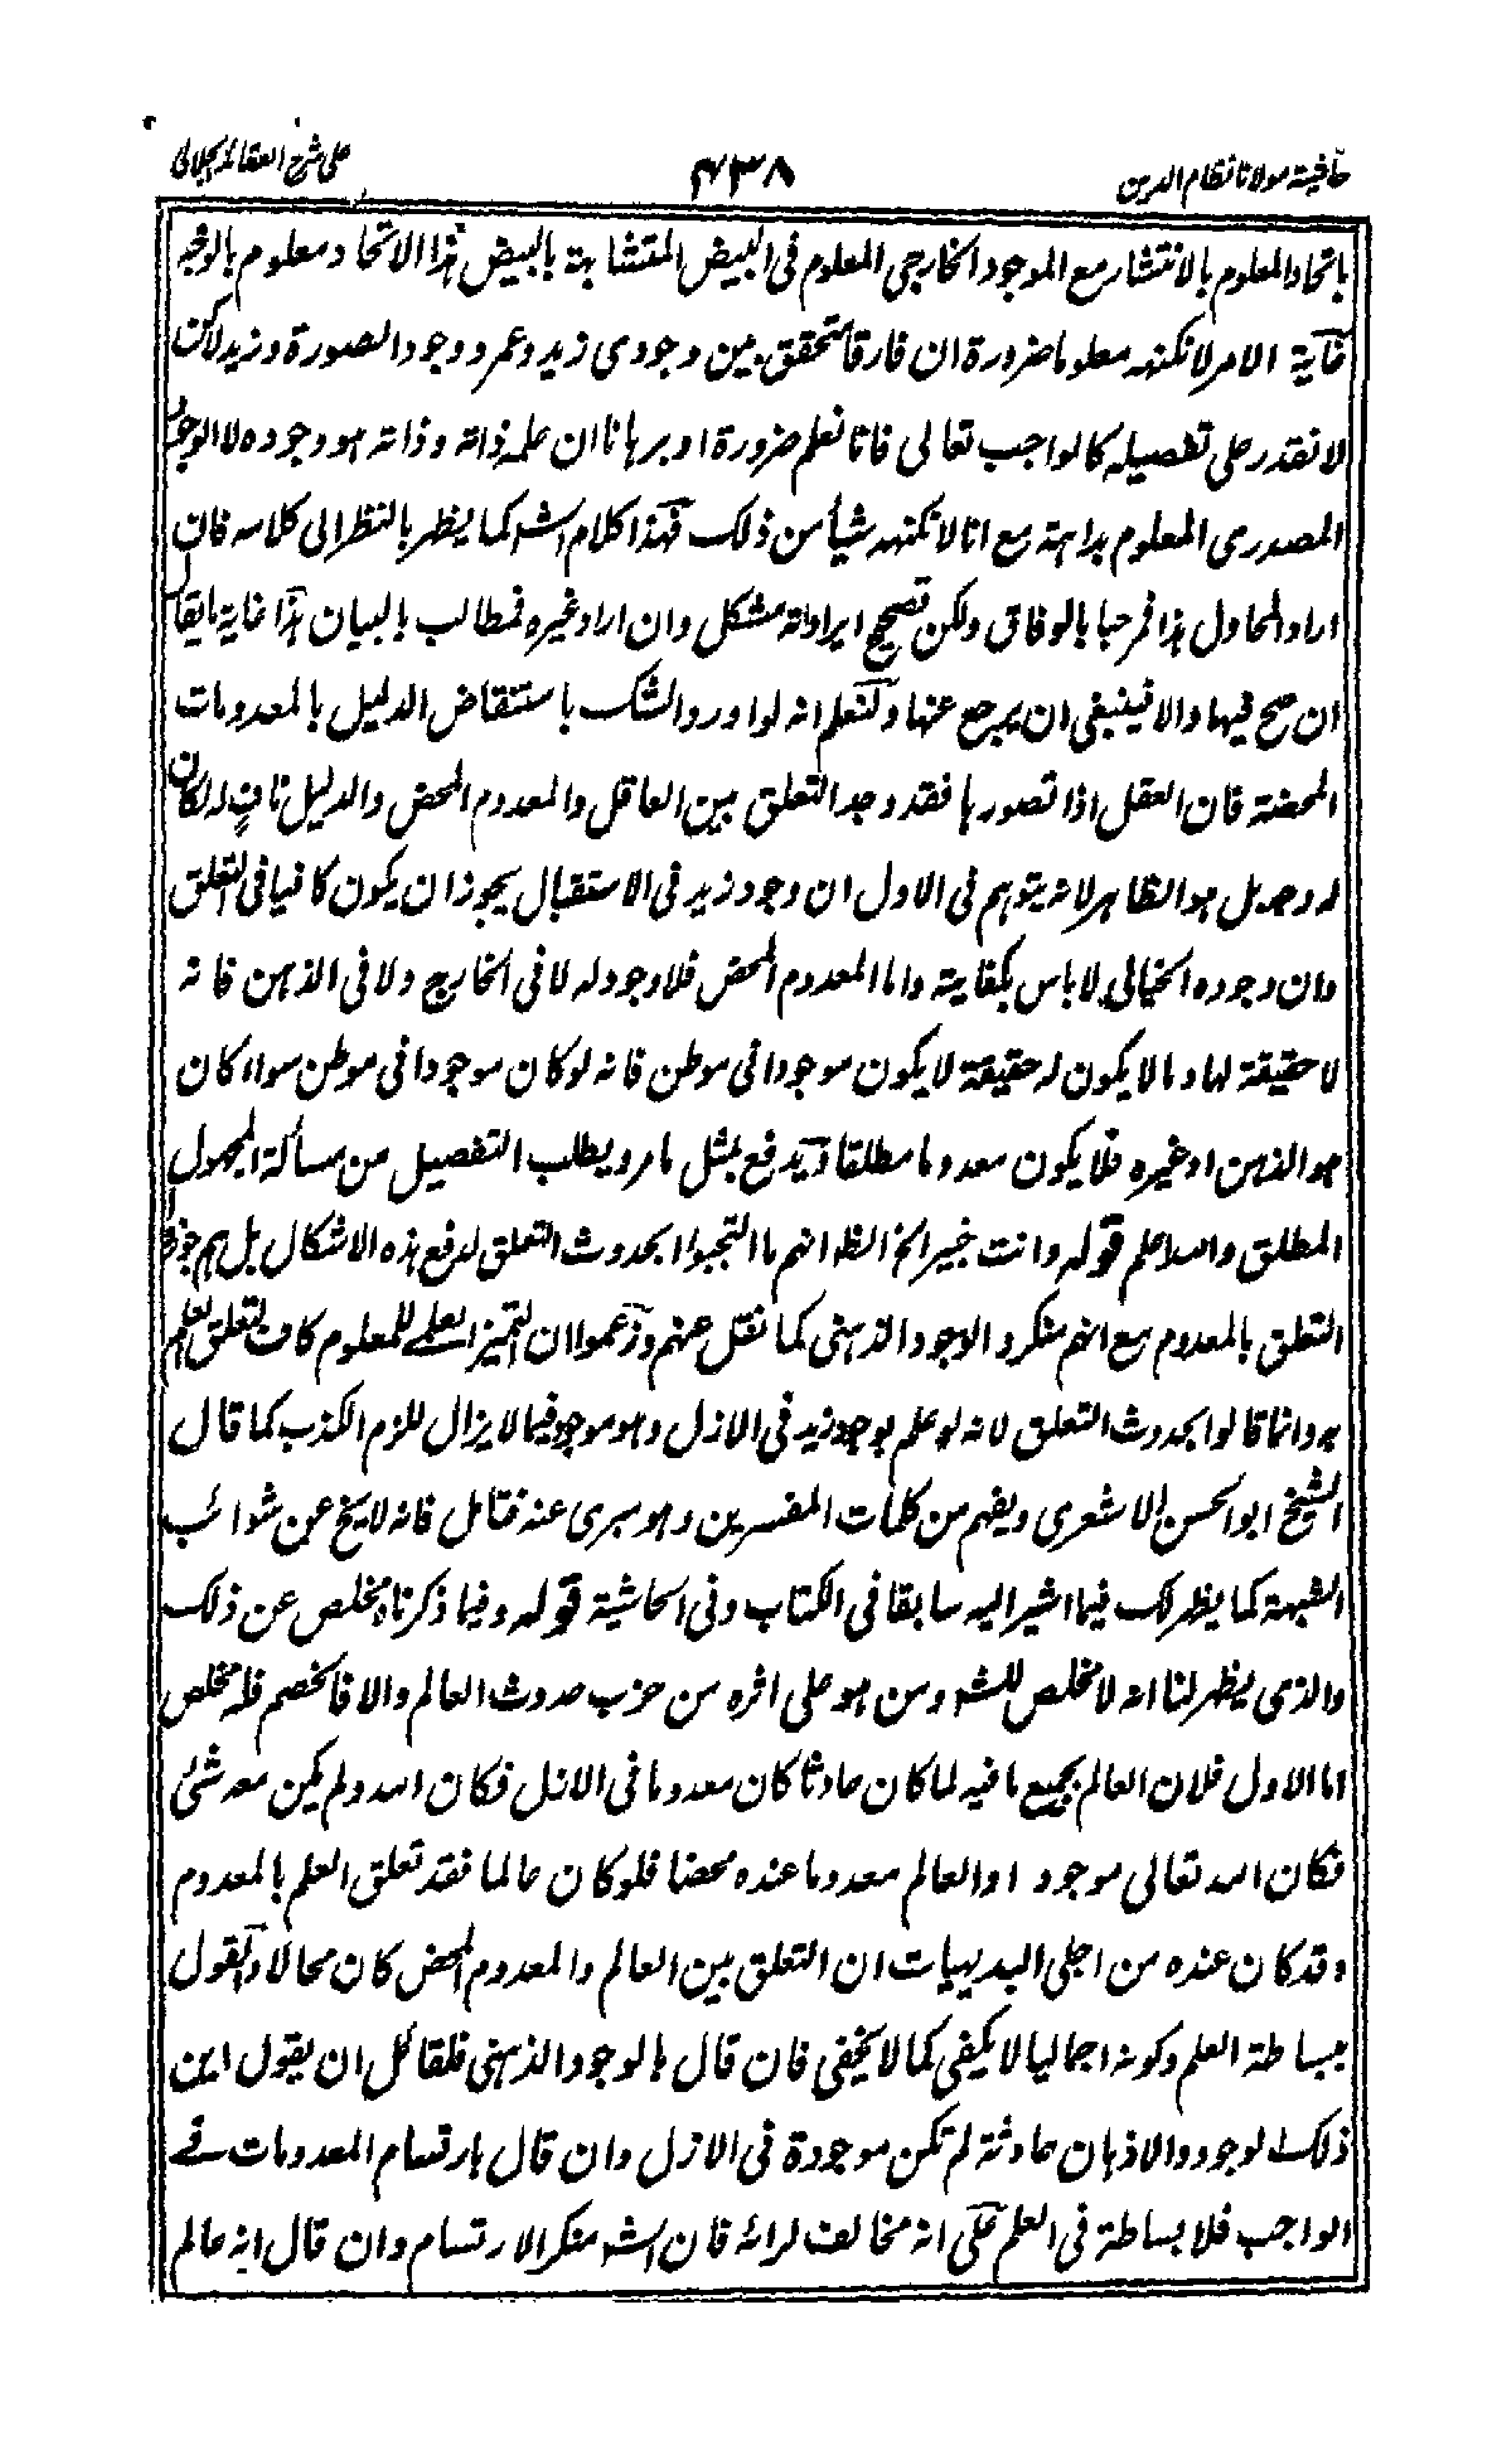 حاشية مولانا نظام الدين
۴۳۸
على شرح العقائد الجلالى
باتحاد المعلوم بالانتشار مع الموجود الخارجى المعلوم فى البيض المتشابهة بالبيض هذا الاتحاد معلوم بالوجه
غاية الامر لا نكتنهه معلوما ضرورة ان فارقا تحقق بين وجودى زيد وعمرو ووجود الصورة وزيد لكن
لا نقدر على تفصيله كالواجب تعالى فانا نعلم ضرورة او برهانا ان علمه ذاته وذاته هو وجوده لا الوجود
المصدرى المعلوم بداهة مع انا لا نكتنهه شيأ من ذلك فهذا كلام الشه كما يظهر بالنظر الى كلامه فان
اراد المحاول هذا فمرحبا بالوفاق ولكن تصحيح ايراداته مشكل وان اراد غيره فمطالب بالبيان هذا غاية ما يقال
ان صح فيها والا فينبغى ان يرجع عنها ولنعلم انه لو اورد الشك باستنقاض الدليل بالمعدومات
المحضة فان العقل اذا تصورها فقد وجد التعلق بين العاقل والمعدوم المحض والدليل ناف له لكان
له وجه بل هو الظاهر لانه يتوهم فى الاول ان وجود زيد فى الاستقبال يجوز ان يكون كافيا فى التعلق
وان وجوده الخيالى لا باس بكفايته واما المعدوم المحض فلا وجود له لا فى الخارج ولا فى الذهن فانه
لا حقيقة لها وما لا يكون له حقيقة لا يكون موجودا فى موطن فانه لو كان موجودا فى موطن سواء كان
هو الذهن او غيره فلا يكون معدوما مطلقا ويدفع بمثل ما مر ويطلب التفصيل من مسألة المجهول
المطلق والله اعلم قوله وانت خبير الخ الظ انهم ما التجبوا بحدوث التعلق لدفع هذه الاشكال بل هم جوزوا
التعلق بالمعدوم مع انهم منكرو الوجود الذهنى كما نقل عنهم وزعموا ان التميز العلمى للمعلوم كاف لتعلق العلم
به وانما قالوا بحدوث التعلق لانه لو علم بوجود زيد فى الازل وهو موجود فيما لا يزال للزم الكذب كما قال
الشيخ ابو الحسن الاشعرى ويفهم من كلمات المفسرين وهو مبرى عنه فتامل فانه لا يخ عن شوائب
الشبهة كما يظهر لك فيما اشير اليه سابقا فى الكتاب وفى الحاشية قوله وفيما ذكرناه مخلص عن ذلك
والذى يظهر لنا انه لا مخلص للشه ومن هو على اثره من حزب حدوث العالم والا فالخصم فله مخلص
اما الاول فلان العالم بجميع ما فيه لما كان حادثا كان معدوما فى الازل فكان الله ولم يكن معه شئ
فكان الله تعالى موجودا والعالم معدوما عنده محضا فلو كان عالما فقد تعلق العلم بالمعدوم
وقد كان عنده من اجلى البديهيات ان التعلق بين العالم والمعدوم المحض كان محالا والقول
ببساطة العلم وكونه اجماليا لا يكفى كما لا يخفى فان قال بالوجود الذهنى فلقائل ان يقول اين
ذلك الوجود والاذهان حادثة لم تكن موجودة فى الازل وان قال بارتسام المعدومات فى
الواجب فلا بساطة فى العلم على انه مخالف لرائه فان الشه منكر الارتسام وان قال انه عالم